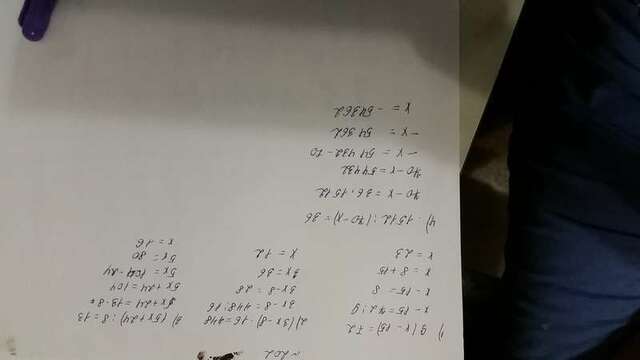 № 202
1) 9(x-15) = 72
x-15 = 72:9
x-15 = 8
x = 8+15
x = 23
2) (3x-8)·16 = 448
3x-8 = 448:16
3x-8 = 28
3x = 36
x = 12
3) (5x+24):8 = 13
5x+24 = 13·8
5x+24 = 104
5x = 104-24
5x = 80
x = 16
4) 1512:(70-x) = 36
70-x = 36·1512
70-x = 54432
-x = 54432-70
-x = 54362
x = -54362